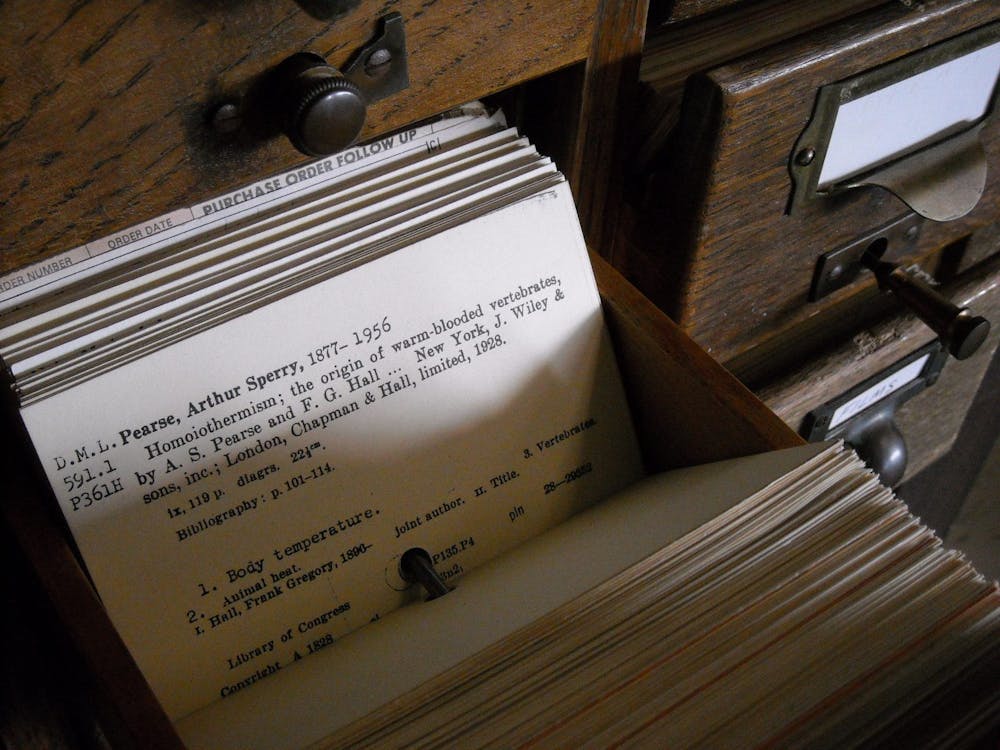 ORDER DATE
PURCHASE ORDER FOLLOW UP
D.M.L. Pearse, Arthur Sperry, 1877- 1956
591.1 Homoiothermism; the origin of warm-blooded vertebrates,
P361H by A. S. Pearse and F. G. Hall ... New York, J. Wiley &
sons, inc.; London, Chapman & Hall, limited, 1928.
ix, 119 p. diagrs. 22½cm.
Bibliography: p. 101-114.
1. Body temperature.
2. Animal heat. 3. Vertebrates.
I. Hall, Frank Gregory, 1890- joint author. II. Title.
28-29552
Library of Congress P135.P4
Copyright A 1828
pln
FILMS